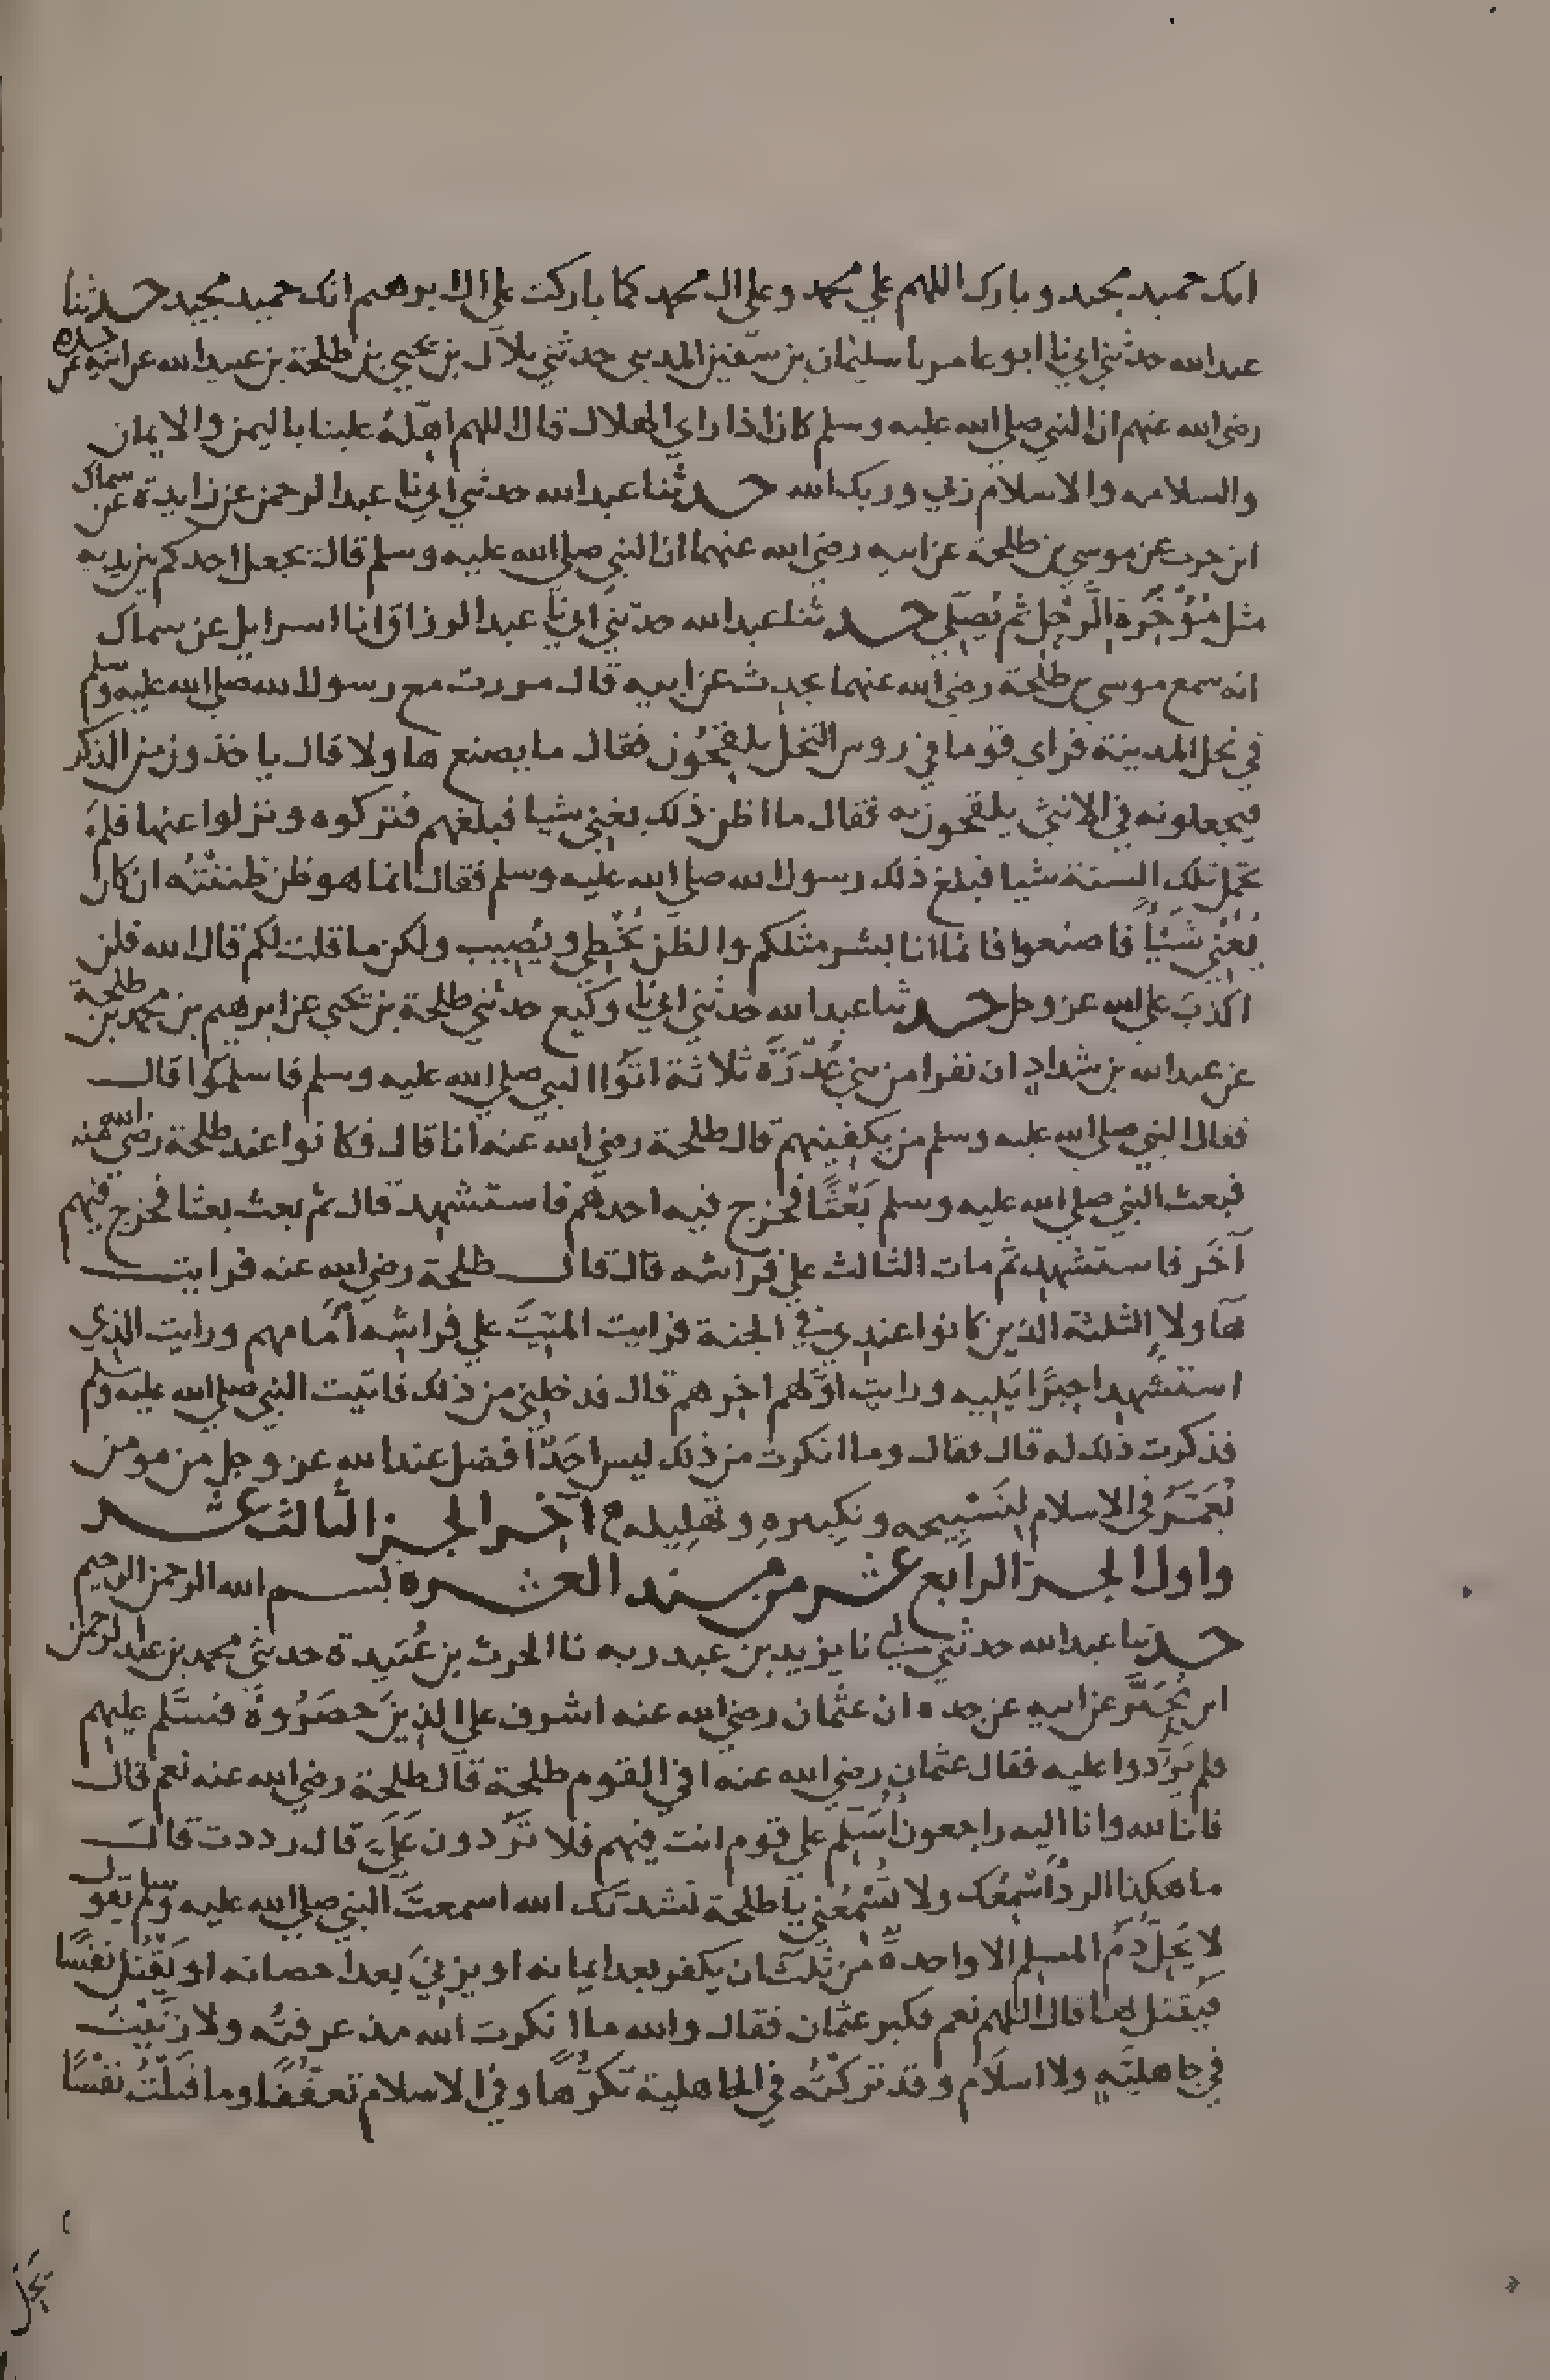 انك حميد مجيد وبارك اللهم علي محمد وعلي ال محمد كما باركت علي ال ابرهيم انك حميد مجيد حدثنا
عبد الله حدثني ابي نا ابو عامر نا سليمان بن سفين المديني حدثني بلال بن يحيي بن طلحة بن عبيد الله عن ابيه عن جده
رضي الله عنهم ان النبي صلي الله عليه وسلم كان اذا راي الهلال قال اللهم اهله علينا باليمن والايمان
والسلامه والاسلام ربي وربك الله حدثنا عبد الله حدثني ابي نا عبد الرحمن عن زايدة عن سماك
ابن حرب عن موسي بن طلحة عن ابيه رضي الله عنهما ان النبي صلي الله عليه وسلم قال يجعل احدكم بين يديه
مثل مُؤَخَّرَة الرَّحْلِ ثم يُصَلِّي حدثنا عبد الله حدثني ابي نا عبد الرزاق انا اسرايل عن سماك
انه سمع موسي بن طلحة رضي الله عنهما يحدث عن ابيه قال مررت مع رسول الله صلي الله عليه وسلم
في نخل المدينة فراي قوما في روس النخل يلقحُون فقال ما يصنع هاولا قال ياخذون من الذكر
فيجعلونه في الانثي يلقحون به فقال ما اظن ذلك يغني شيا فبلغهم فتركوه ونزلوا عنها فلم
تحمل تلك السنة شيا فبلغ ذلك رسول الله صلي الله عليه وسلم فقال انما هو ظن ظننتُه ان كان
يُغْنِي شَيْئاً فاصنعوا فانما انا بشر مثلكم والظن يُخْطِي ويُصِيب ولكن ما قلت لكم قال الله فلن
اكذبَ علي الله عز وجل حدثنا عبد الله حدثني ابي نا وكيع حدثني طلحة بن يحيي عن ابرهيم بن محمد بن طلحة
عن عبد الله بن شداد ان نفرا من بني عُذْرَة ثلاثة اتَوا النبي صلي الله عليه وسلم فاسلمُوا قال
فقال النبي صلي الله عليه وسلم من يكفينهم قال طلحة رضي الله عنه انا قال فكانوا عند طلحة رضي الله عنه
فبعث النبي صلي الله عليه وسلم بَعْثًا فخرج فيه احدهم فاستشهد قال ثم بعث بعثا فخرج فيهم
آخَر فاستشهد ثم مات الثالث علي فراشه قال قال طلحة رضي الله عنه فرايت
هَاولا الثلثة الذين كانوا عندي في الجنة فرايت الميِّتَ علي فراشِه أَمَامهم ورايت الذي
استشهد اخيرًا يَلِيه ورايت اوَّلهم اخرهم قال فدخلني من ذلك فاتيت النبي صلي الله عليه وسلم
فذكرت ذلك له قال فقال وما انكرت من ذلك ليس احَدٌ افضل عند الله عز وجل من مومن
يُعَمَّرُ في الاسلام لِتَسْبِيحه وتكبيرهِ وتهليله آخر الجز الثالث عشر
واول الجز الرابع عشر من مسند العشره بسم الله الرحمن الرحيم
حدثنا عبد الله حدثني ابي نا يزيد بن عبد ربه نا الحرث بن عُبَيدة حدثني محمد بن عبد الرحمن
ابن مُجَبَّر عن ابيه عن جده ان عثمان رضي الله عنه اشرف علي الذين حصَرُوهُ فسَلَّم عليهم
فلم يَرُدوا عليه فقال عثمان رضي الله عنه افي القوم طلحة قال طلحة رضي الله عنه نعم قال
فانا لله وانا اليه راجعون أُسَلِّم علي قوم انت فيهم فلا تَرُدون عَلَيَّ قال رددت قال
ما هكذا الردُّ أُسْمِعُك ولا تُسْمِعُني يا طلحة نَشدتك الله اسمعتَ النبي صلي الله عليه وسلم يقول
لا يَحِلُّ دَمَ المسلم الا واحدةٌ من ثَلث ان يكفر بعد ايمانه او يزني بعد احصانه او يَقْتُل نفسًا
فيُقتل بها قال اللهم نعم فكبر عثمان فقال والله ما انكرت الله منذ عرفتُه ولا زَنَيْتُ
في جاهليَّهٍ ولا اسلام وقد تركتُه في الجاهلية تكرُّهًا وفي الاسلام تعفُّفًا وما قتَلْتُ نفْسًا
يحل